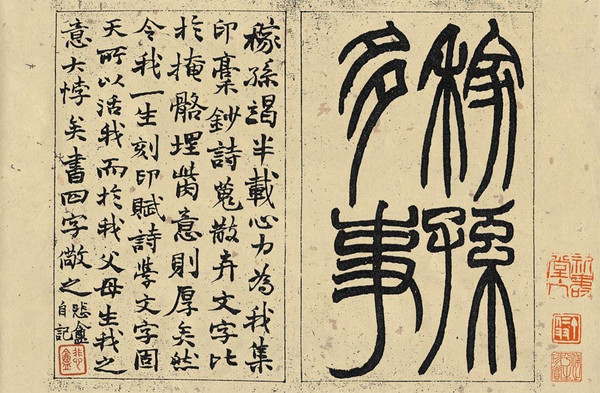 稼孫
多事
稼孫竭半載心力為我集
印稾鈔詩蒐散弃文字比
於掩骼埋胔意則厚矣然
令我一生刻印賦詩學文字固
天所以活我而於我父母生我之
意大悖矣書四字儆之悲盦
自記
悲盦